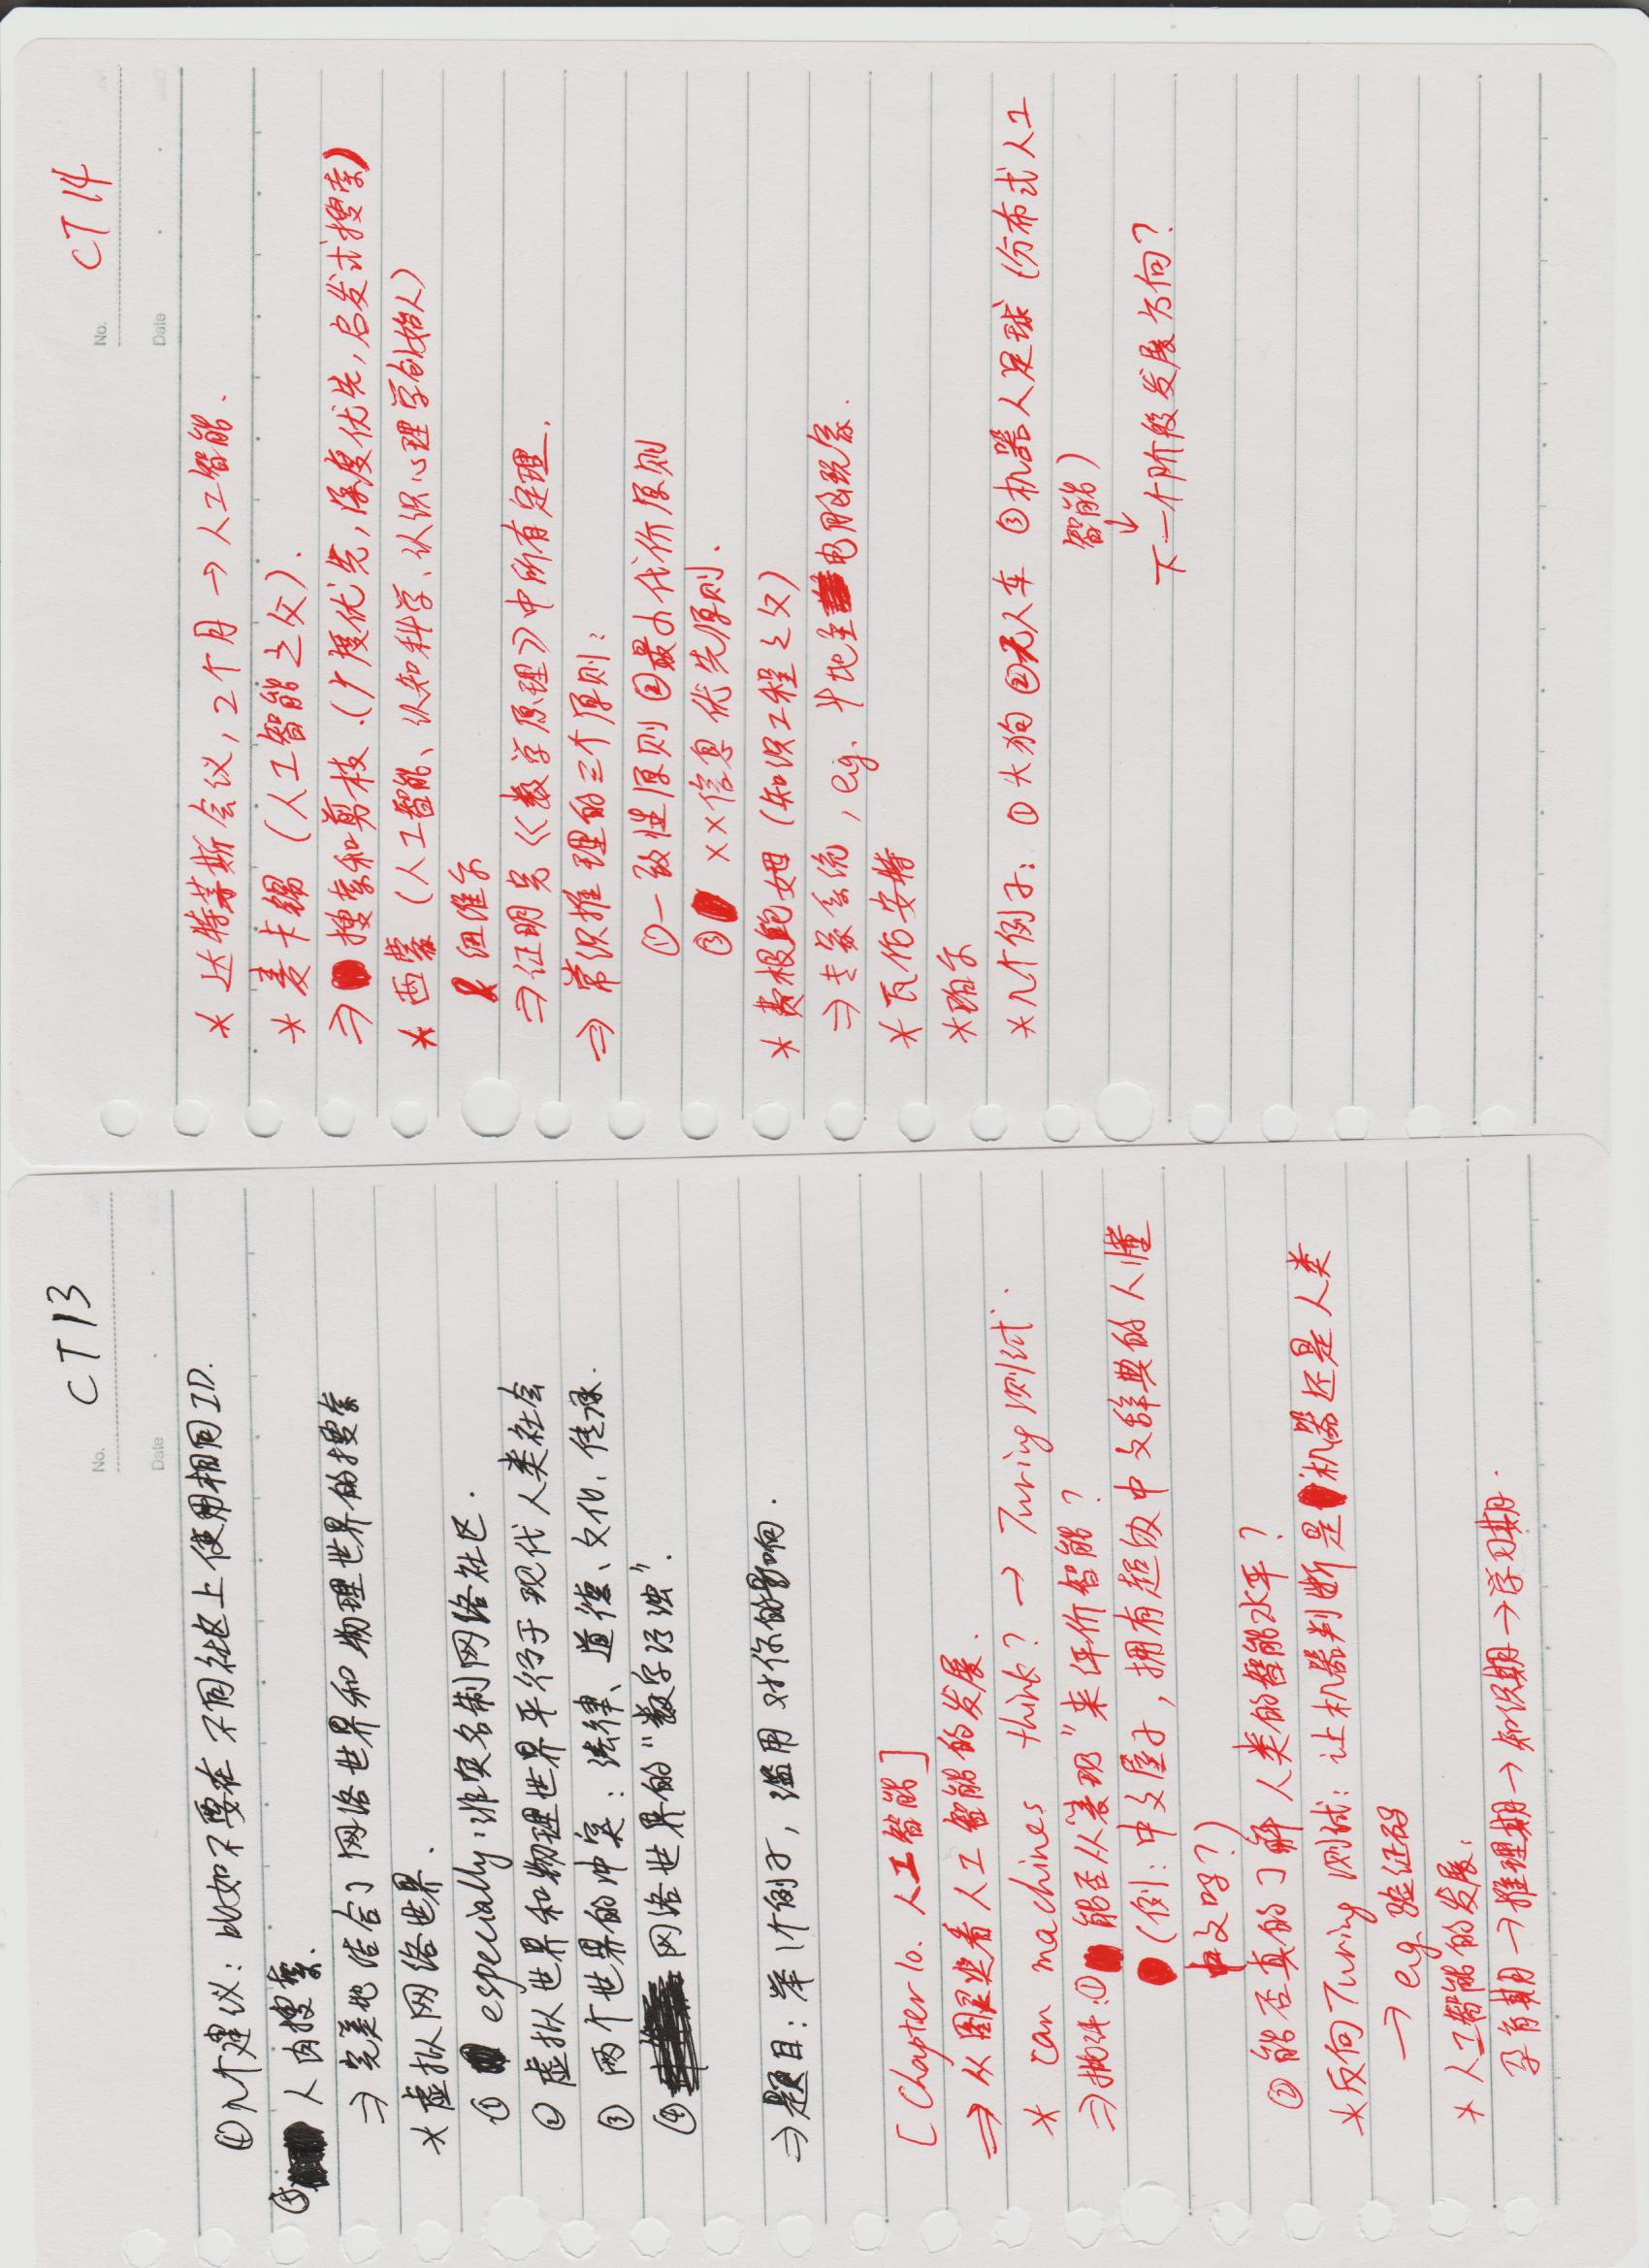 No. CT13
Date
④几个建议：比如不要在不同社区上使用相同ID.
⑤ 人肉搜索.
⇒ 完美地结合了网络世界和物理世界的搜索
* 虚拟网络世界.
① especially：非实名制网络社区.
② 虚拟世界和物理世界平行于现代人类社会
③ 两个世界的冲突：法律、道德、文化、传承.
④ 网络世界的“数字污浊”.
⇒ 题目：举1个例子，滥用对你的影响.
[Chapter 10. 人工智能]
⇒ 从图灵奖看人工智能的发展.
* can machines think? → Turing测试.
⇒ 批评：① 能否从“表现”来评价智能？
(例：中文屋子，拥有超级中文辞典的人懂
中文吗？)
② 能否真的了解人类的智能水平？
* 反向Turing测试：让机器判断是机器还是人类
→ e.g. 验证码
* 人工智能的发展.
孕育期→推理期→知识期→学习期.
No. CT14
Date
* 达特茅斯会议，2个月 → 人工智能.
* 麦卡锡（人工智能之父）.
⇒ 搜索和剪枝.(广度优先，深度优先，启发式搜索)
* 西蒙（人工智能、认知科学、认识心理学创始人）
& 纽维尔
⇒ 证明完《数学原理》中所有定理.
⇒ 常识推理的三个原则：
①一致性原则 ②最小代价原则
③ ××信息优先原则.
* 费根鲍姆（知识工程之父）
⇒ 专家系统，e.g. 斗地主电脑玩家.
* 瓦伦安特
* 珀尔
* 几个例子：① 大狗 ②无人车 ③机器人足球（分布式人工
智能）
↓
下一个阶段发展方向？